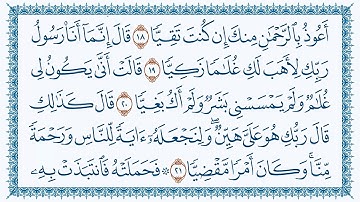 أَعُوذُ بِٱلرَّحْمَٰنِ مِنكَ إِن كُنتَ تَقِيًّا ١٨ قَالَ إِنَّمَآ أَنَا۠ رَسُولُ
رَبِّكِ لِأَهَبَ لَكِ غُلَٰمًا زَكِيًّا ١٩ قَالَتْ أَنَّىٰ يَكُونُ لِى
غُلَٰمٌ وَلَمْ يَمْسَسْنِى بَشَرٌ وَلَمْ أَكُ بَغِيًّا ٢٠ قَالَ كَذَٰلِكِ
قَالَ رَبُّكِ هُوَ عَلَىَّ هَيِّنٌ ۖ وَلِنَجْعَلَهُۥٓ ءَايَةً لِّلنَّاسِ وَرَحْمَةً
مِّنَّا ۚ وَكَانَ أَمْرًا مَّقْضِيًّا ٢١ ۞ فَحَمَلَتْهُ فَٱنتَبَذَتْ بِهِۦ